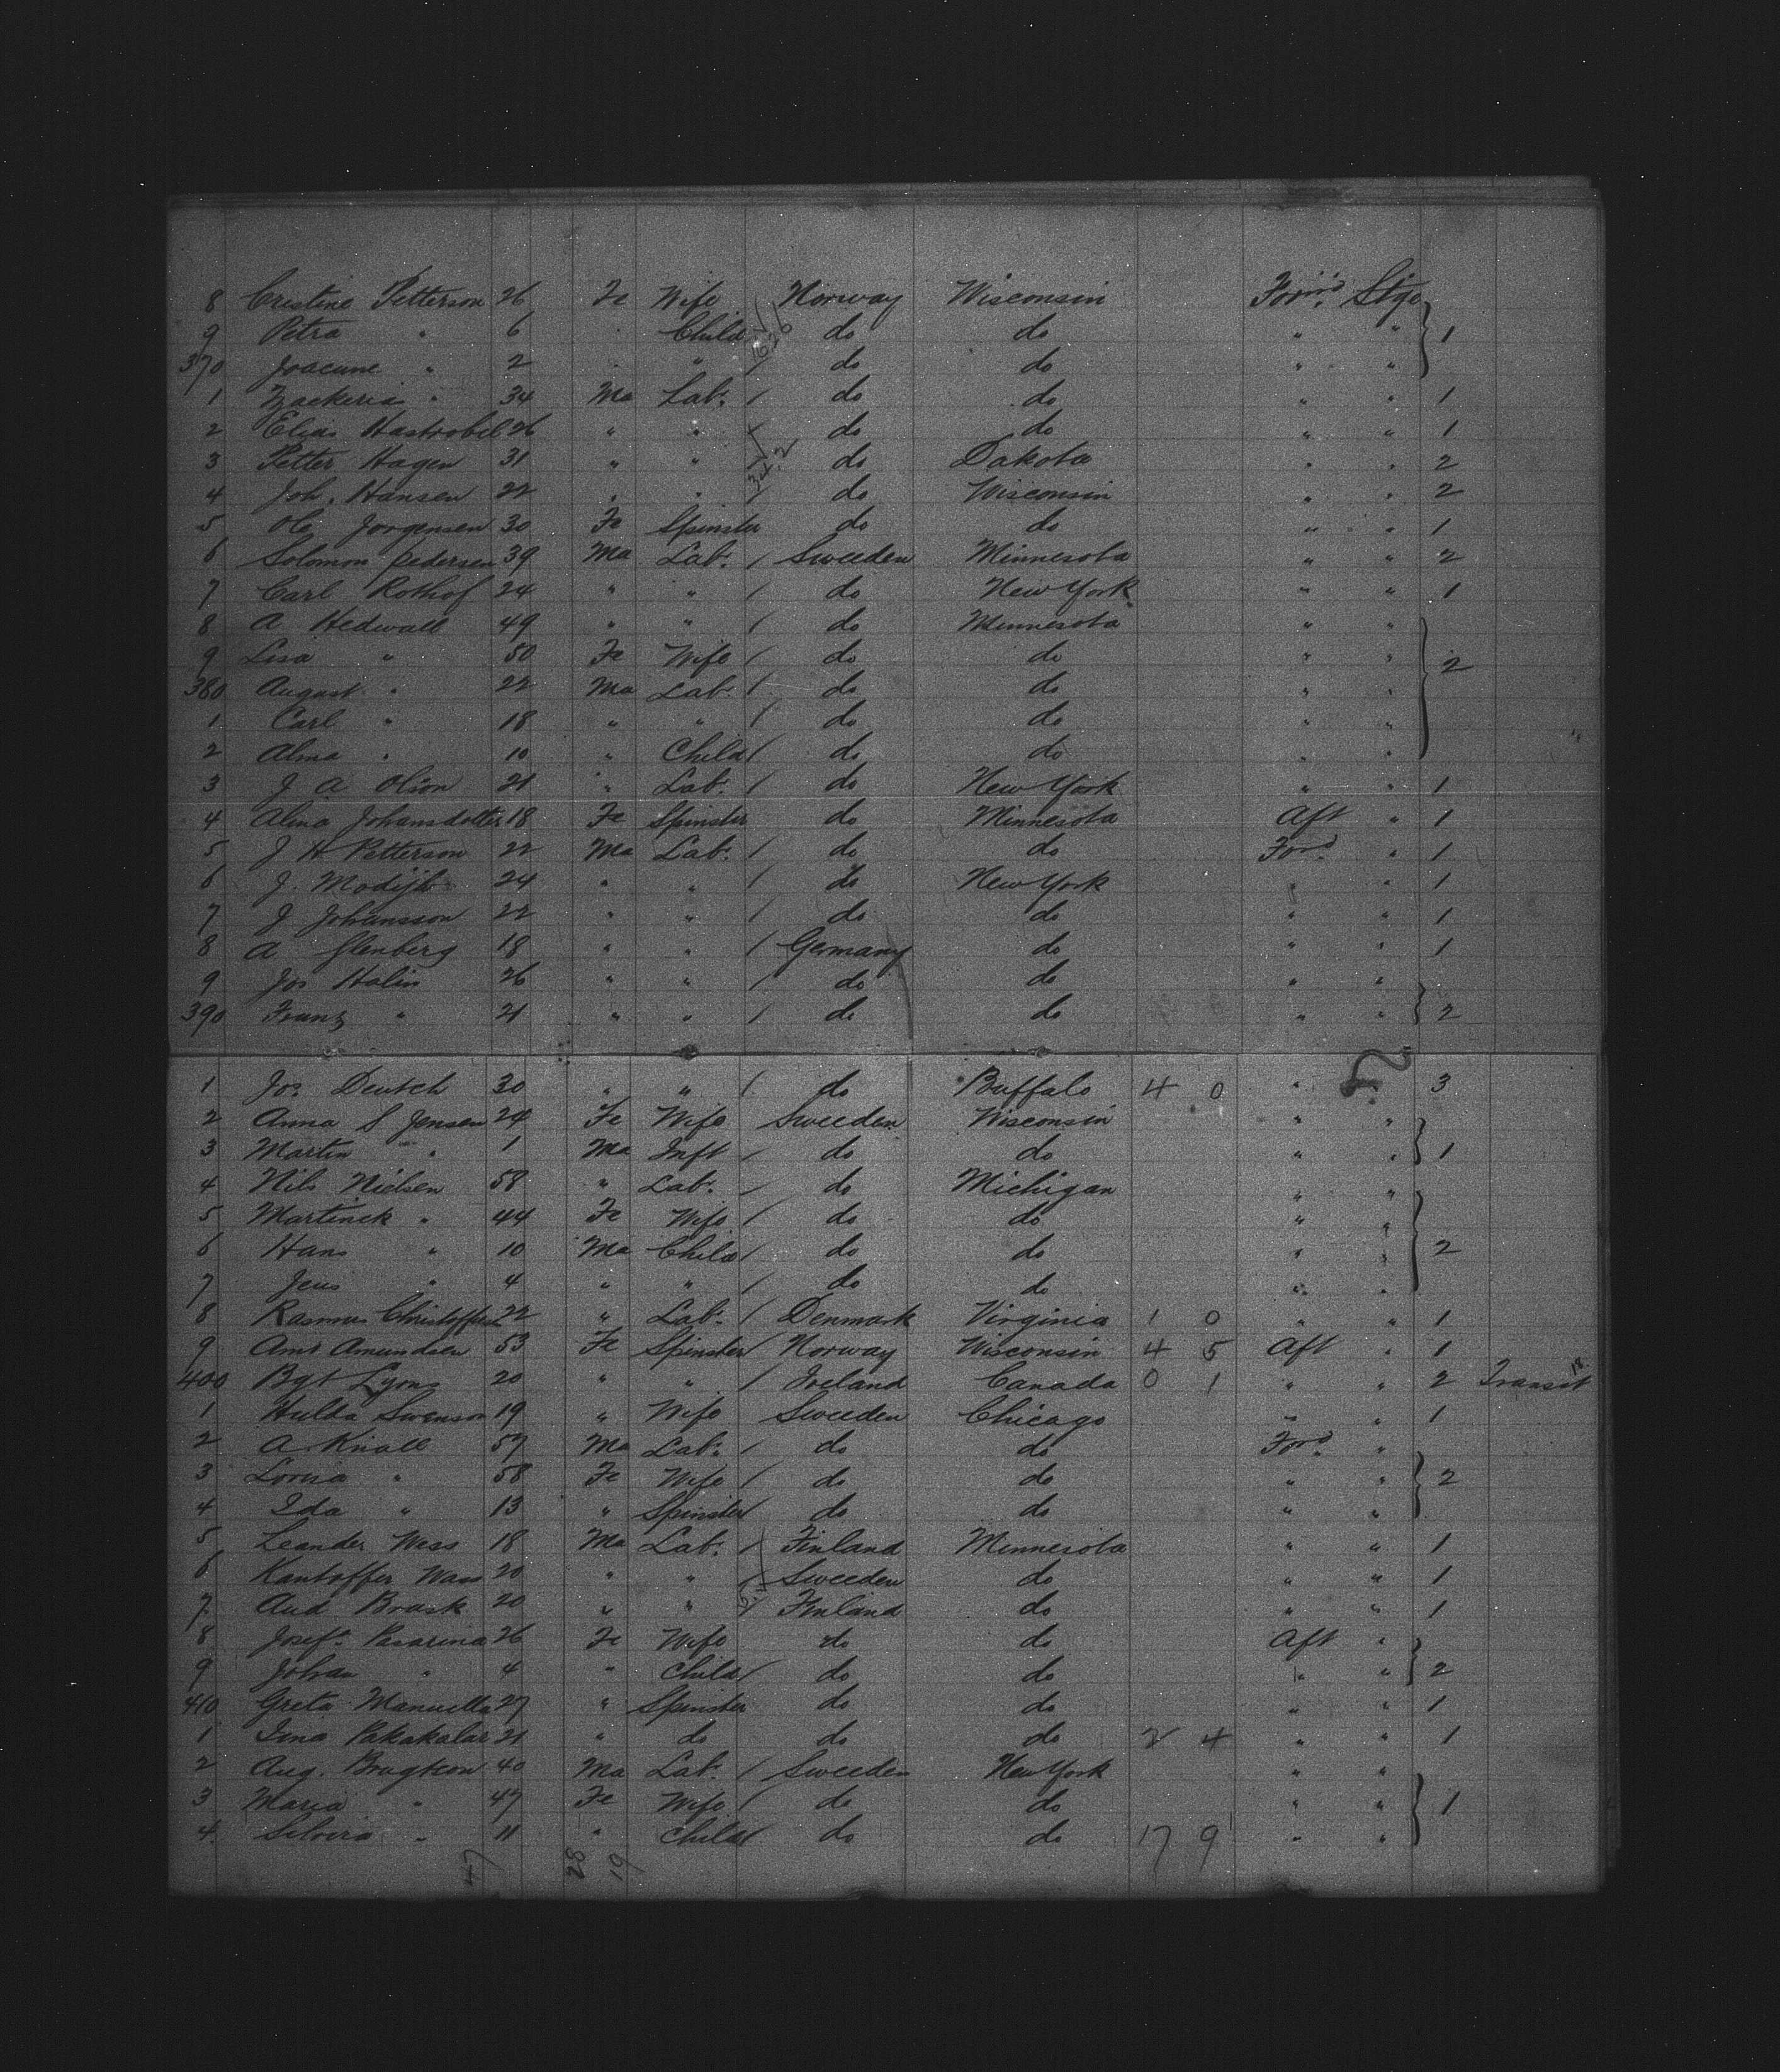 8 Cristine Petterson 26 Fe Wife Norway Wisconsin For'd Stge
9 Petra " 6 Child do do " " 1
370 Joacune " 2 " do do " "
1 Zackerias " 34 Ma Lab. / do do " " 1
2 Elias Hastrobel 26 " " / do do " " 1
3 Petter Hagen 31 " " / do Dakota " " 2
4 Joh. Hansen 22 " " / do Wisconsin " " 2
5 Ole Jorgensen 30 Fe Spinster do do " " 1
6 Solomon Pedersen 39 Ma Lab. / Sweeden Minnesota " " 2
7 Carl Rothof 24 " " / do New York " " 1
8 A Hedwall 49 " " / do Minnesota " "
9 Lisa " 50 Fe Wife / do do " " 2
380 August " 22 Ma Lab. / do do " "
1 Carl " 18 " " / do do " "
2 Alma " 10 " Child / do do " "
3 J A Olson 21 " Lab. / do New York " " 1
4 Alma Johansdotter 18 Fe Spinster do Minnesota Aft " 1
5 J H Petterson 22 Ma Lab. / do do For'd " 1
6 J. Modijh 24 " " / do New York " " 1
7 J Johansson 22 " " / do do " " 1
8 A Glenberg 18 " " / Germany do " " 1
9 Jos Halin 26 " " / do do " "
390 Franz " 21 " " / do do " " 2
1 Jos. Deutch 30 " " / do Buffalo 4 0 " 3
2 Anna S Jensen 24 Fe Wife Sweeden Wisconsin " "
3 Martin " 1 Ma Inft / do do " " 1
4 Nils Nielsen 58 " Lab. / do Michigan " "
5 Martinek " 44 Fe Wife / do do " "
6 Hans " 10 Ma Child / do do " " 2
7 Jens " 4 " " / do do " "
8 Rasmus Christoffersen 22 " Lab. / Denmark Virginia 1 0 " " 1
9 Amt Amundsen 53 Fe Spinster / Norway Wisconsin 4 5 Aft " 1
400 Bgt Lyons 20 " " / Ireland Canada 0 1 " " 2 Transit
1 Hulda Swenson 19 " Wife Sweeden Chicago " " 1
2 A Knall 57 Ma Lab. / do do For'd "
3 Lovisa " 58 Fe Wife / do do " " 2
4 Ida " 13 " Spinster / do do " "
5 Leander Wess 18 Ma Lab. / Finland Minnesota " " 1
6 Kantoffer Wass 20 " " / Sweeden do " " 1
7 Aud Brask 20 " " / Finland do " " 1
8 Josef. Pasarina 26 Fe Wife do do Aft "
9 Johan " 4 " Child / do do " " 2
410 Greta Manuella 27 " Spinster do do " " 1
1 Lina Pakakalar 21 " do do do 2 4 " " 1
2 Aug. Bragtson 40 Ma Lab. / Sweeden New York " "
3 Maria " 47 Fe Wife / do do " " 1
4 Silvira " 11 " Child / do do 17 9 " "
47 28 19